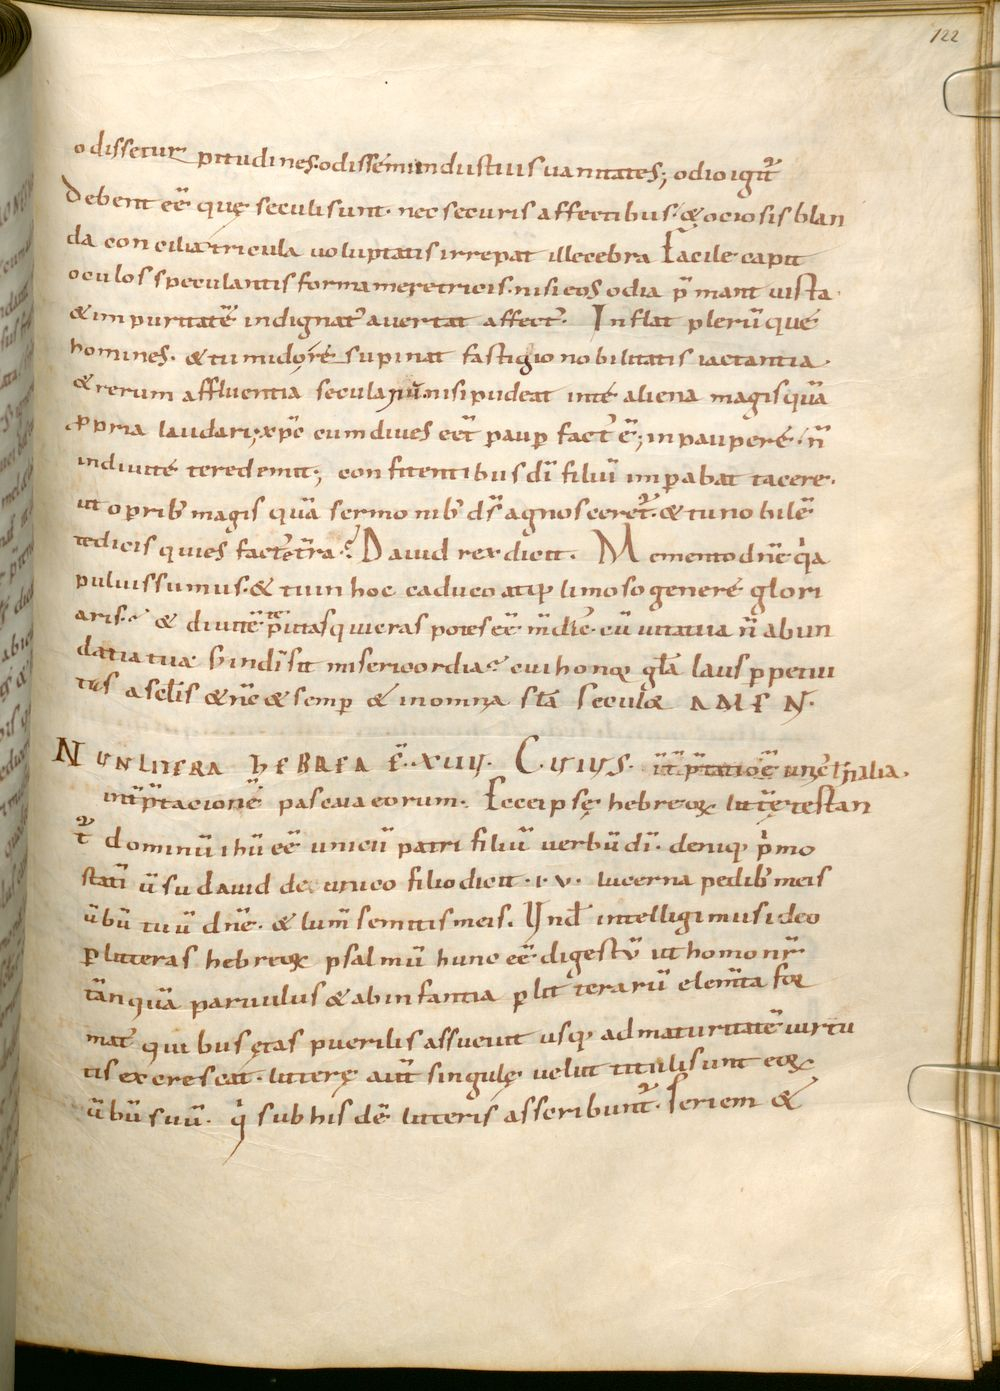 122
odissetur pitudines. odissemundustuis uanitates; odio igit̄
debent eē quę seculi sunt. nec securis affectibus. & ociosis blan
da conciliatricula uoluptatis irrepat illecebra Facile capit
oculos speculantis forma meretricis. nisi eos odia p̄mant uista
& impuritatē indignat̄ auertat affect̄. Inflat plerūque
homines. & tumidore supinat fastigio nobilitatis iactantia.
& rerum affluentia secularium. nisi pudeat inte aliena magis quā
propria laudari; xp̄c cum diues eēt paup̄ fact̄ ē; in paupere. n̄
indiuite te redemit; confitentibus dī filiū imp̄abat tacere.
ut operib; magis quā sermonib; ds̄ agnosceret̄. & tu nobilē
te dicis qui es fact̄ et̄ra? Dauid rex dicit. Memento dn̄e q̄a
puluis sumus. & tu in hoc caduco atq; limoso genere glori
aris? & diuitē te p̄uitas qui eras potes eē cū uita tua n̄ abun
data tua sit misericordia? cui honor gl̄a laus perpetui
tas a sclīs & nc̄ & semp̄ & in omnia sclā seculoꝝ AMEN.
NUN LITTERA HEBREA Ē. XIIII. Cuius int̄p̄tatioē alia.
int̄p̄tacionē pascua eorum. Ecce ipsę hebreoꝝ litterę testan
t̄ dominū ih̄u eē unicū patri filiū uerbū dī. deniq; p̄mo
statī ūsu dauid de unico filio dicit. I. V. lucerna pedib; meis
ūbū tuū dn̄e. & lum̄ semitis meis. Und̄ intelligimus ideo
per litteras hebreoꝝ psalmū hunc eē digestū ut homo nr̄
tanquā paruulus & ab infantia per litterarū elem̄ta for
mat̄ quibus ętas puerilis assueuit usq; ad maturitatē uirtu
tis excrescat. litterę aut̄ singulę uelut tituli sunt eoꝝ
ūbū suū. q̄ sub his dē litteris asscribunt̄. seriem &